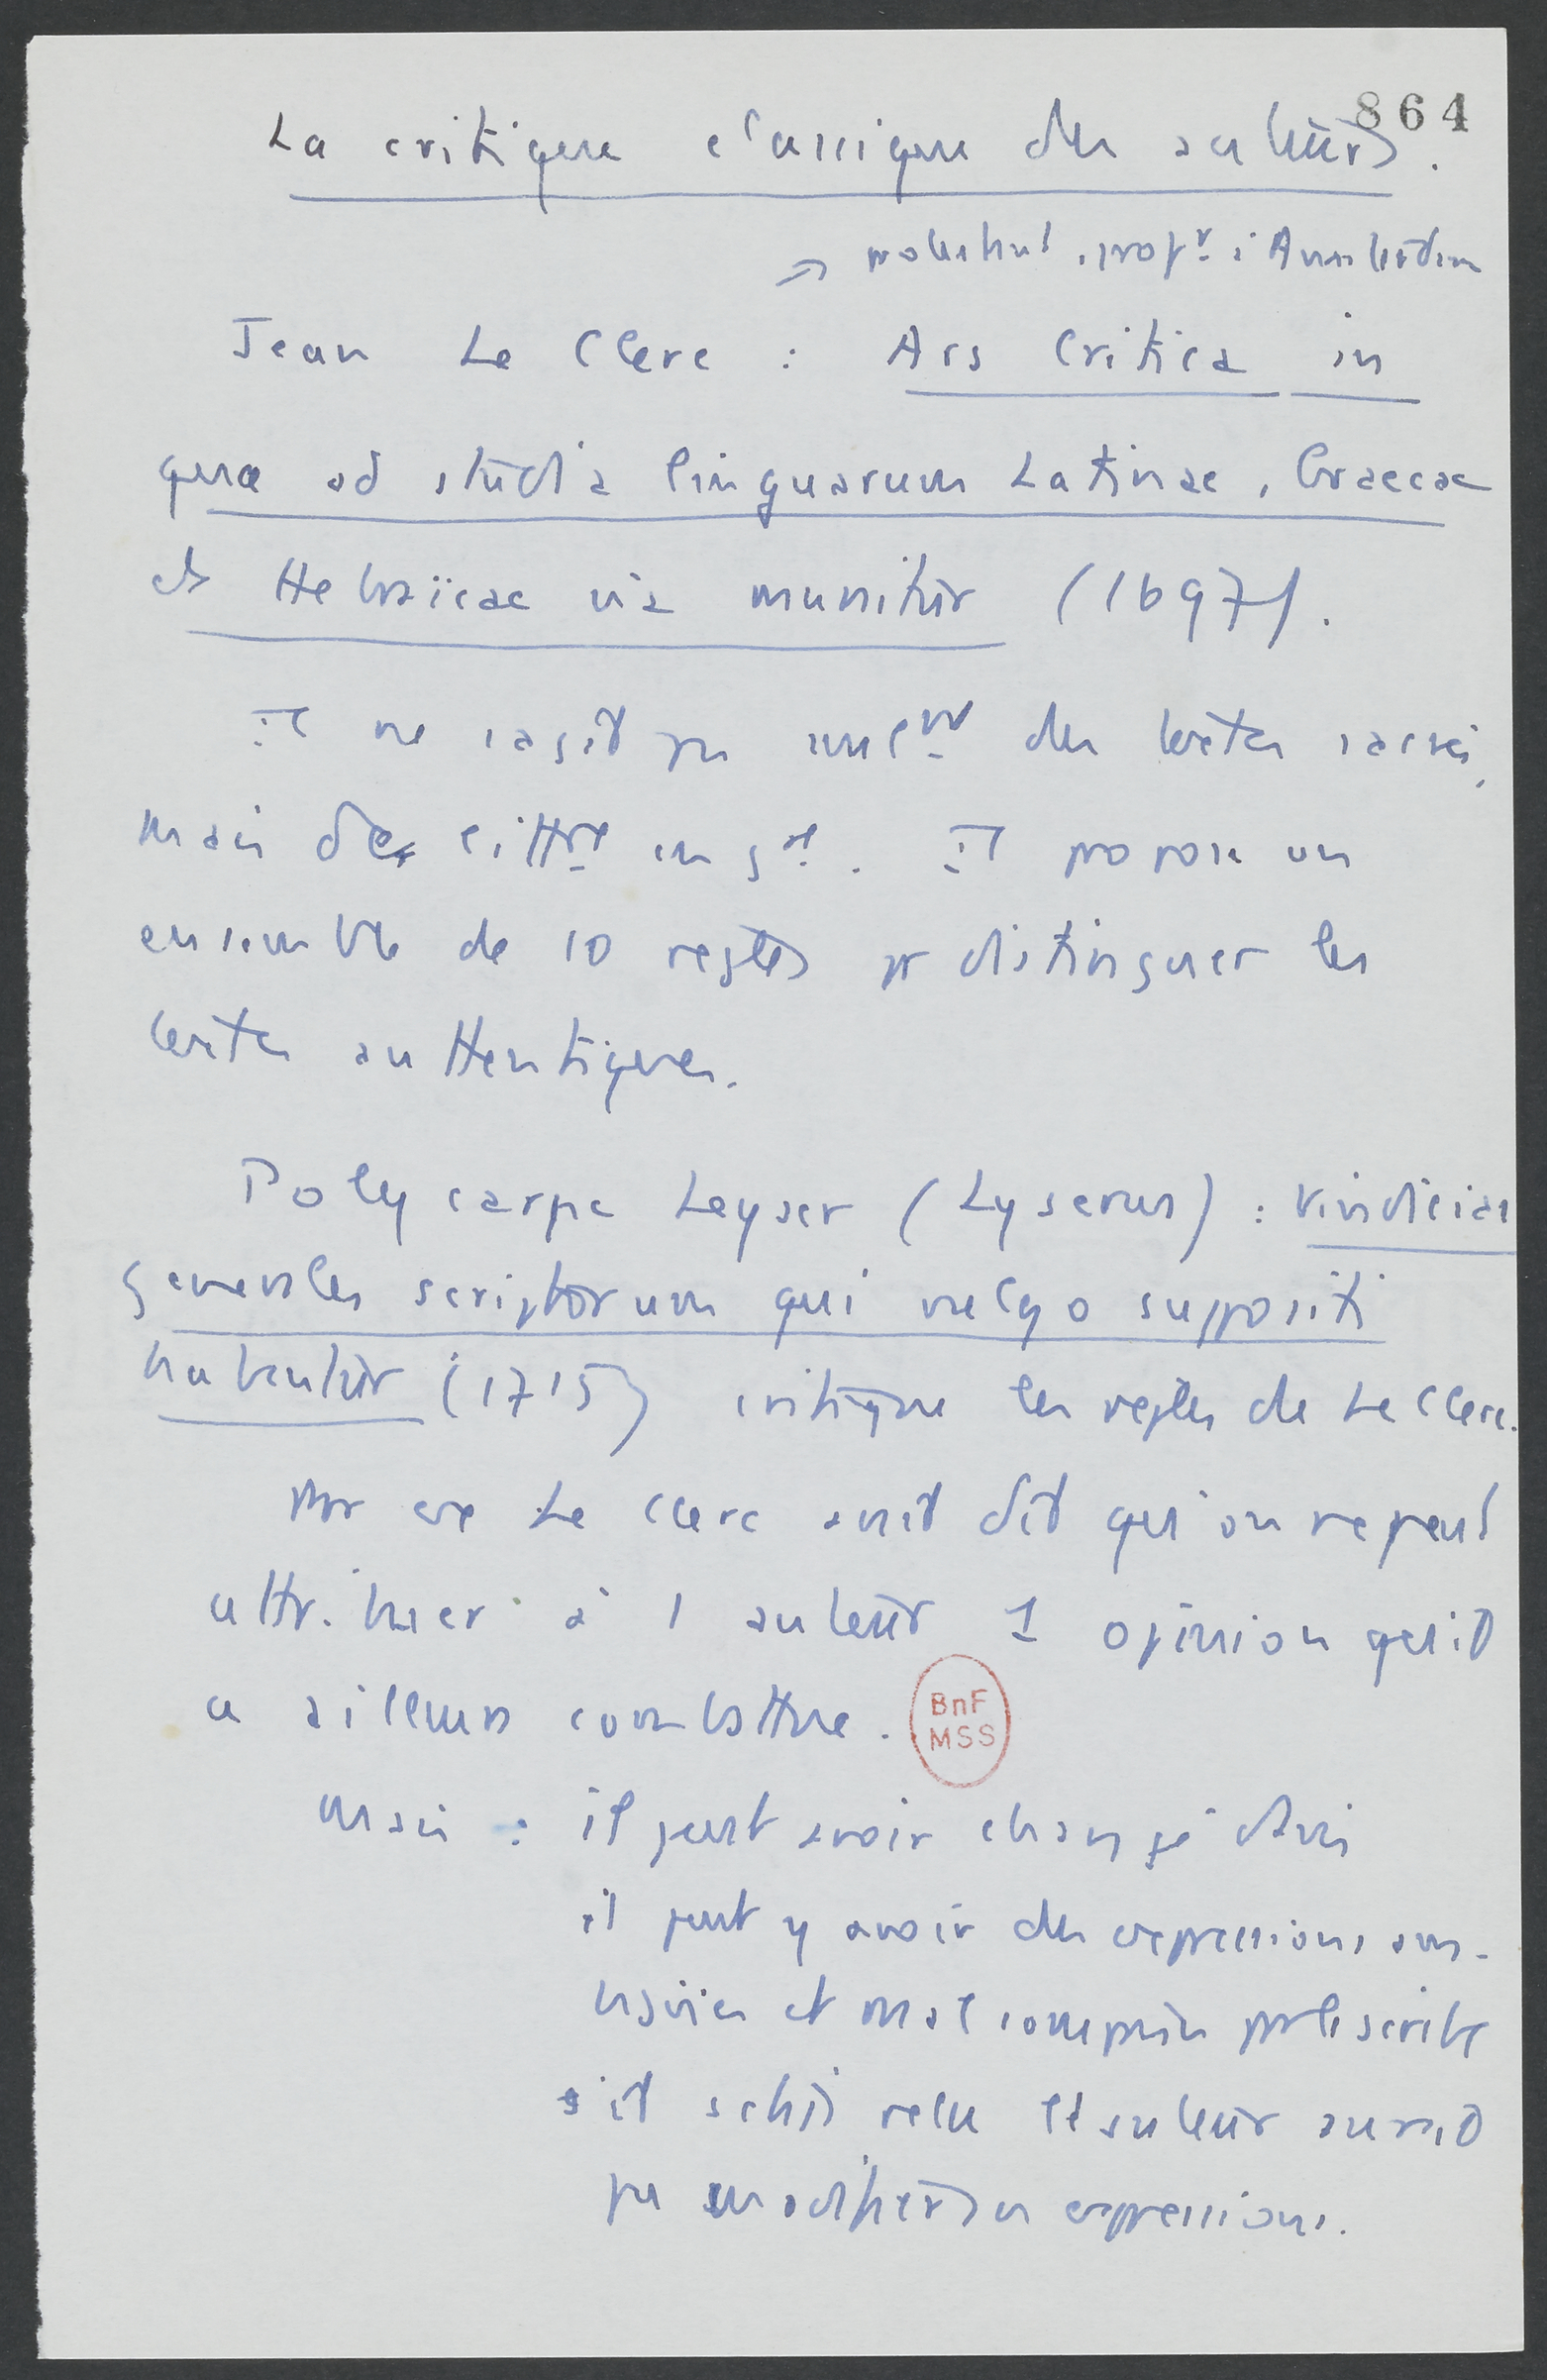 864
La critique classique des auteurs.
→ protestant, profr à Amsterdam
Jean Le Clerc : Ars Critica in
qua ad studia linguarum Latinae, Graecae
et Hebraïcae via munitur (1697).
Il ne s'agit pas seulnt des textes sacrés,
mais de littre en gal. Il propose un
ensemble de 10 regles pr distinguer les
textes authentiques.
Polycarpe Leyser (Lyserus) : Vindicias
generales scriptorum qui vulgo suppositi
habentur (1715) critique les regles de Le Clerc.
Par ex Le Clerc avait dit qu'on ne peut
attribuer à 1 auteur 1 opinion qu'il
a ailleurs combattue.
BnF
MSS
Mais : il peut avoir changé d'avis
il peut y avoir des expressions am-
biguës et mal comprises par le scribe
relu l'auteur aurait
pu modifier ses expressions.